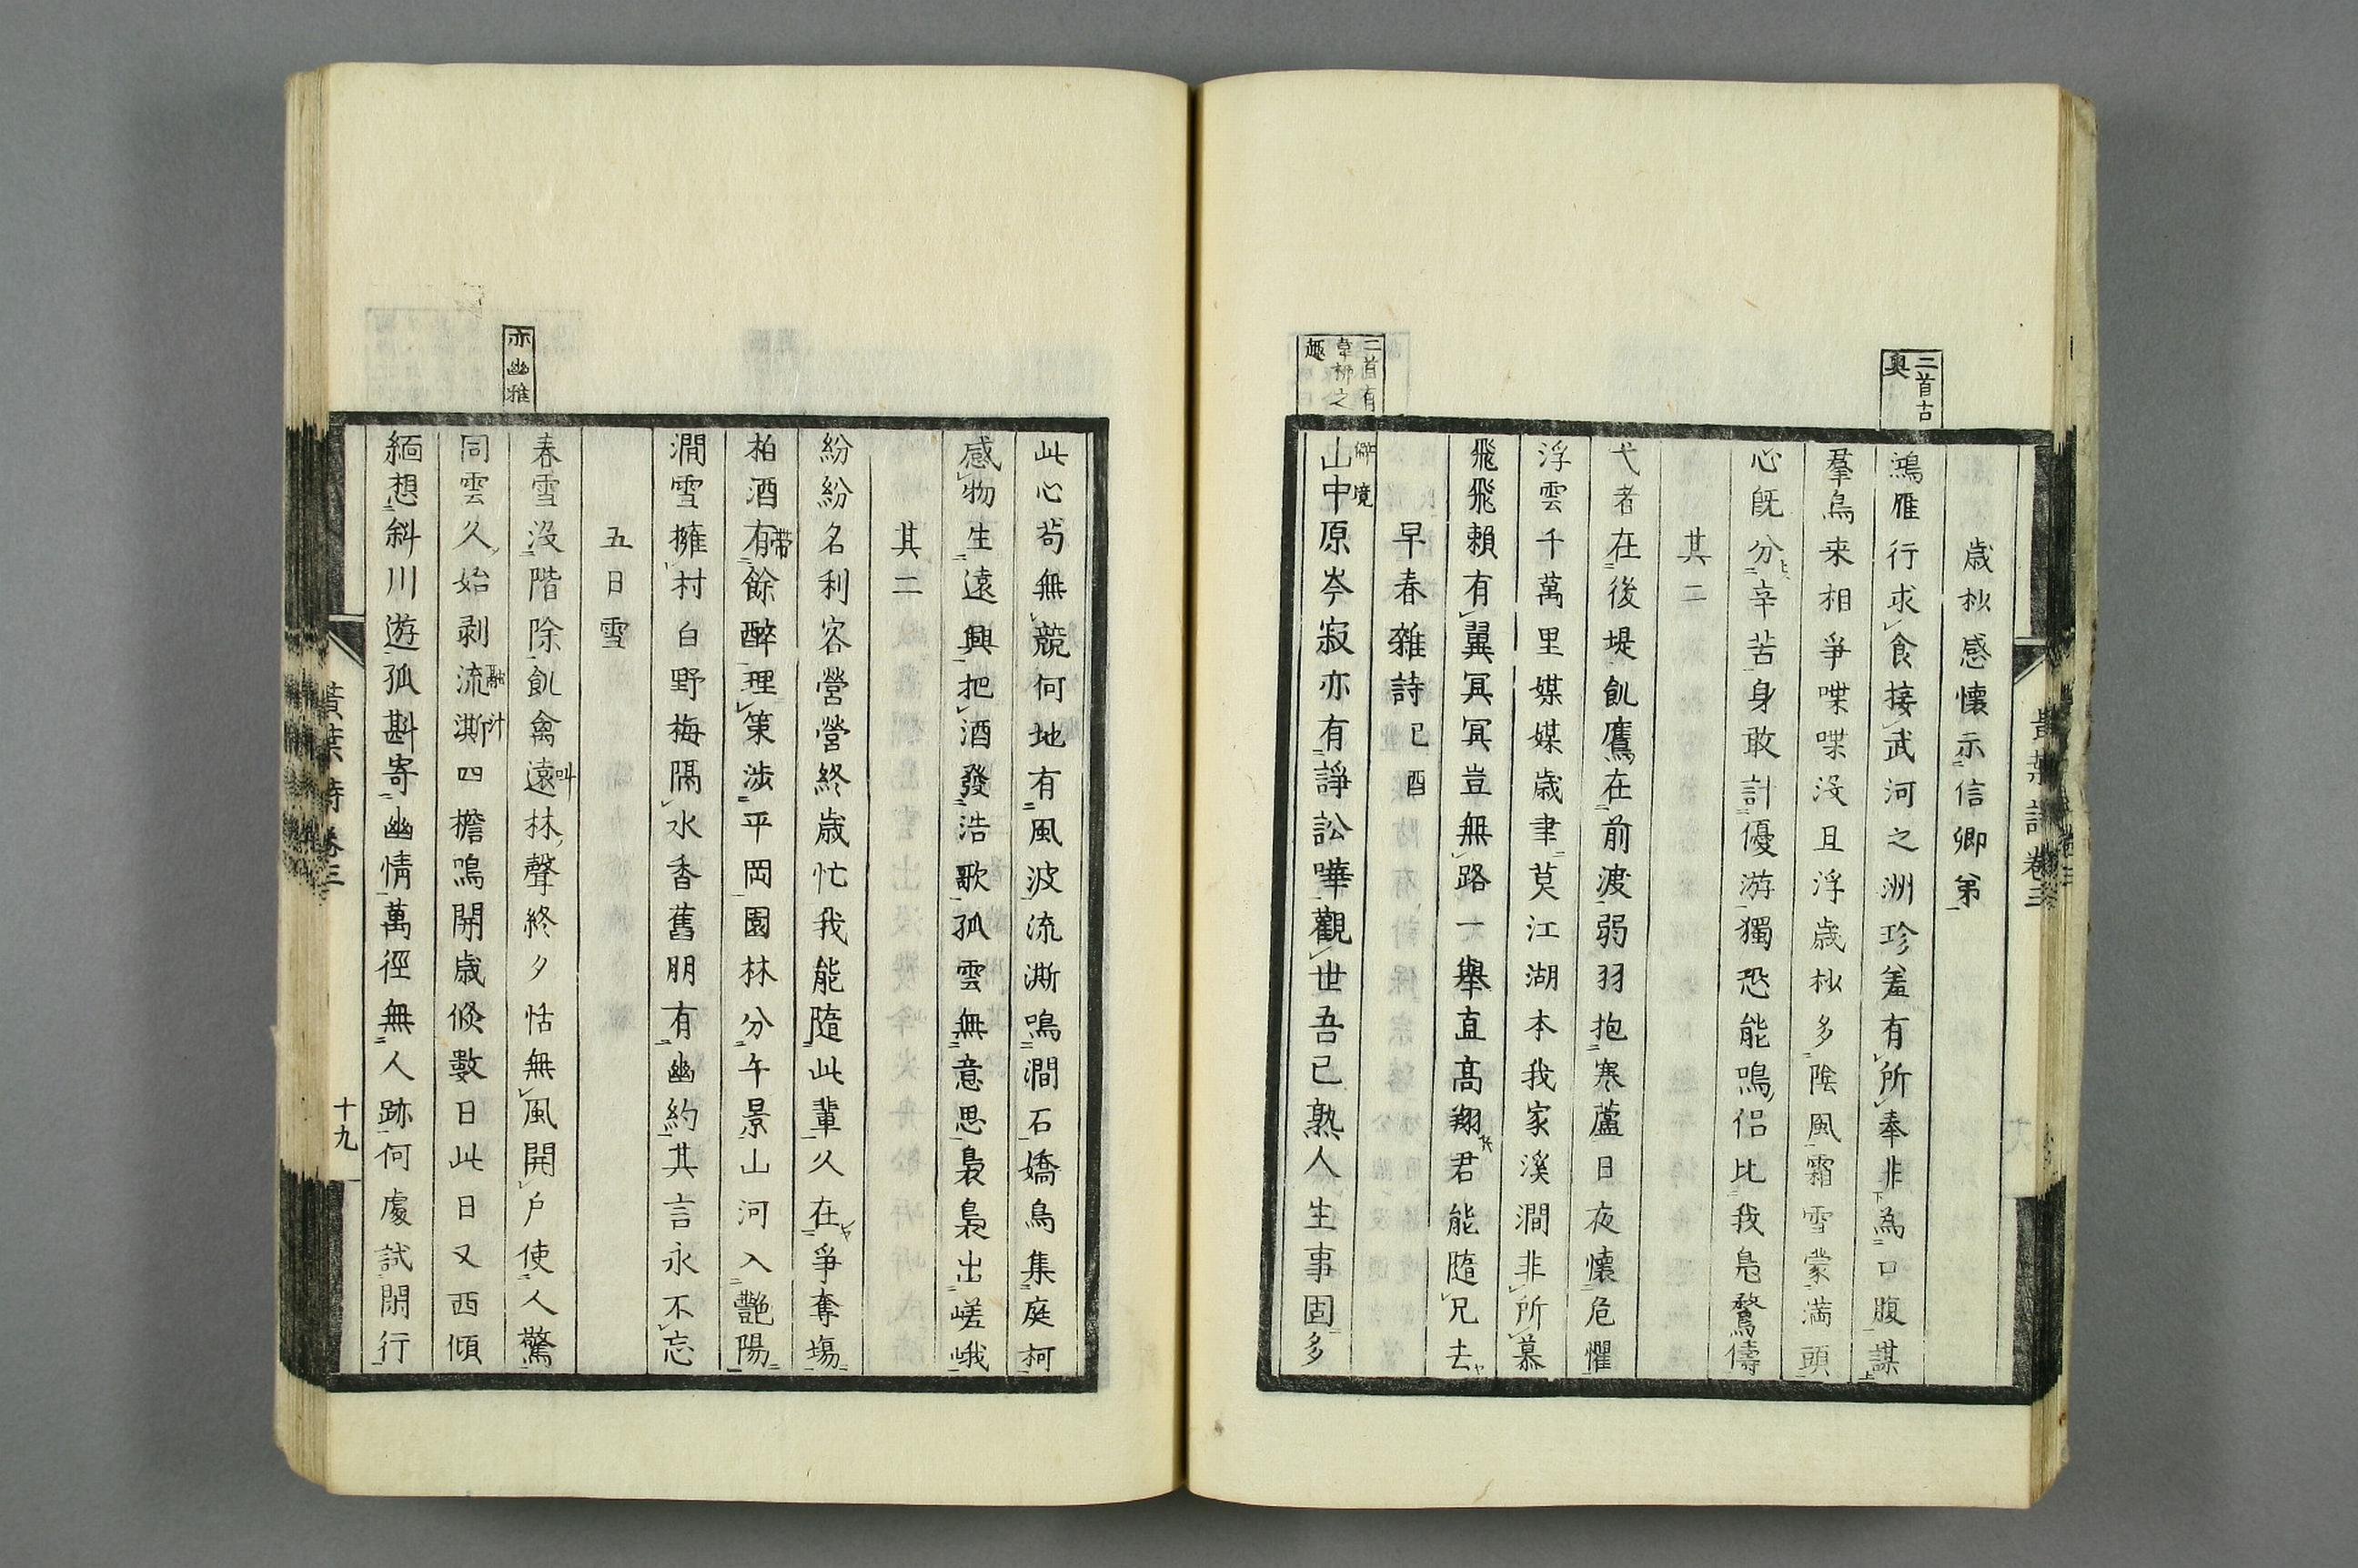 二首古
奥
歳杪感懷示信卿弟
鴻雁行求食接武河之洲珍羞有所奉非為口腹謀
羣鳥来相爭喋喋没且浮歳杪多陰風霜雪蒙満頭
心既分辛苦身敢計優游獨恐能鳴侣比我鳬鶩儔
其二
弋者在後堤飢鷹在前波弱羽抱寒蘆日夜懷危懼
浮雲千萬里媒媒歳聿莫江湖本我家溪澗非所慕
飛飛頼有翼冥冥豈無路一舉直髙翔君能隨兄去
早春雜詩己酉
二首有
韋栁之
趣
山中原岑寂亦有諍訟嘩觀世吾已熟人生事固多
僻境
此心茍無競何地有風波流澌鳴澗石嬌鳥集庭柯
感物生遠興把酒發浩歌孤雲無意思裊裊出嵯峨
其二
紛紛名利客營營終歳忙我能隨此輩久在爭奪場
柏酒有餘醉理策渉平岡園林分午景山河入艶陽
帯
澗雪擁村白野梅隔水香舊朋有幽約其言永不忘
五日雪
亦幽雅
春雪没階除飢禽遠林聲終夕恬無風開戸使人驚
叫
同雲久始剥流澌四檐鳴開歳倐數日此日又西傾
融汁
緬想斜川遊孤斟寄幽情萬徑無人跡何處試閑行
黄葉詩卷三
十九